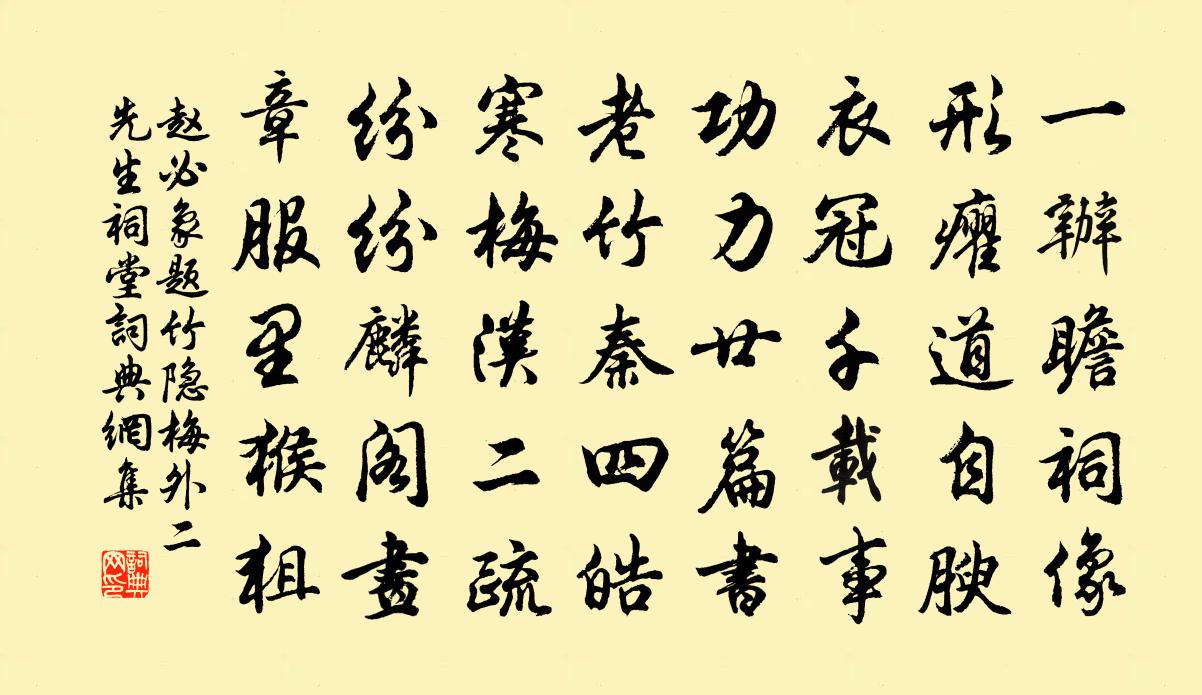 一辦瞻祠像
形癯道自腴
衣冠千載事
功力廿篇書
老竹秦四皓
寒梅漢二疏
紛紛麟阁畫
章服里猴狙
赵必象题竹隐梅外二
先生祠堂詞典網集
詞典网印